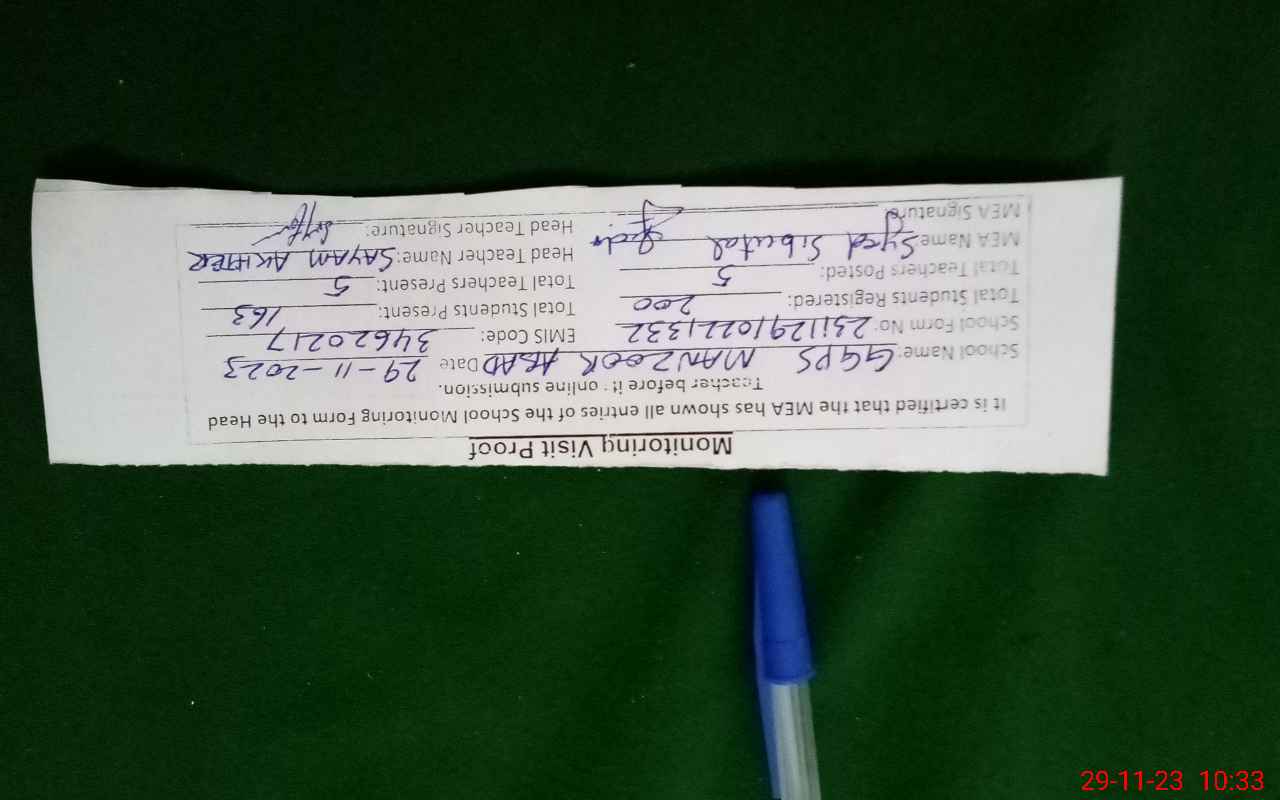 Monitoring Visit Proof
It is certified that the MEA has shown all entries of the School Monitoring Form to the Head
Teacher before it: online submission.
School Name: GGPS MANZOOR ABAD Date 29-11-2023
School Form No: 23112910221332 EMIS Code: 34620217
Total Students Registered: 200 Total Students Present: 163
Total Teachers Posted: 5 Total Teachers Present: 5
MEA Name: Syed Sibutal Head Teacher Name: SAYAM AKHTER
MEA Signature: Head Teacher Signature:
29-11-23 10:33